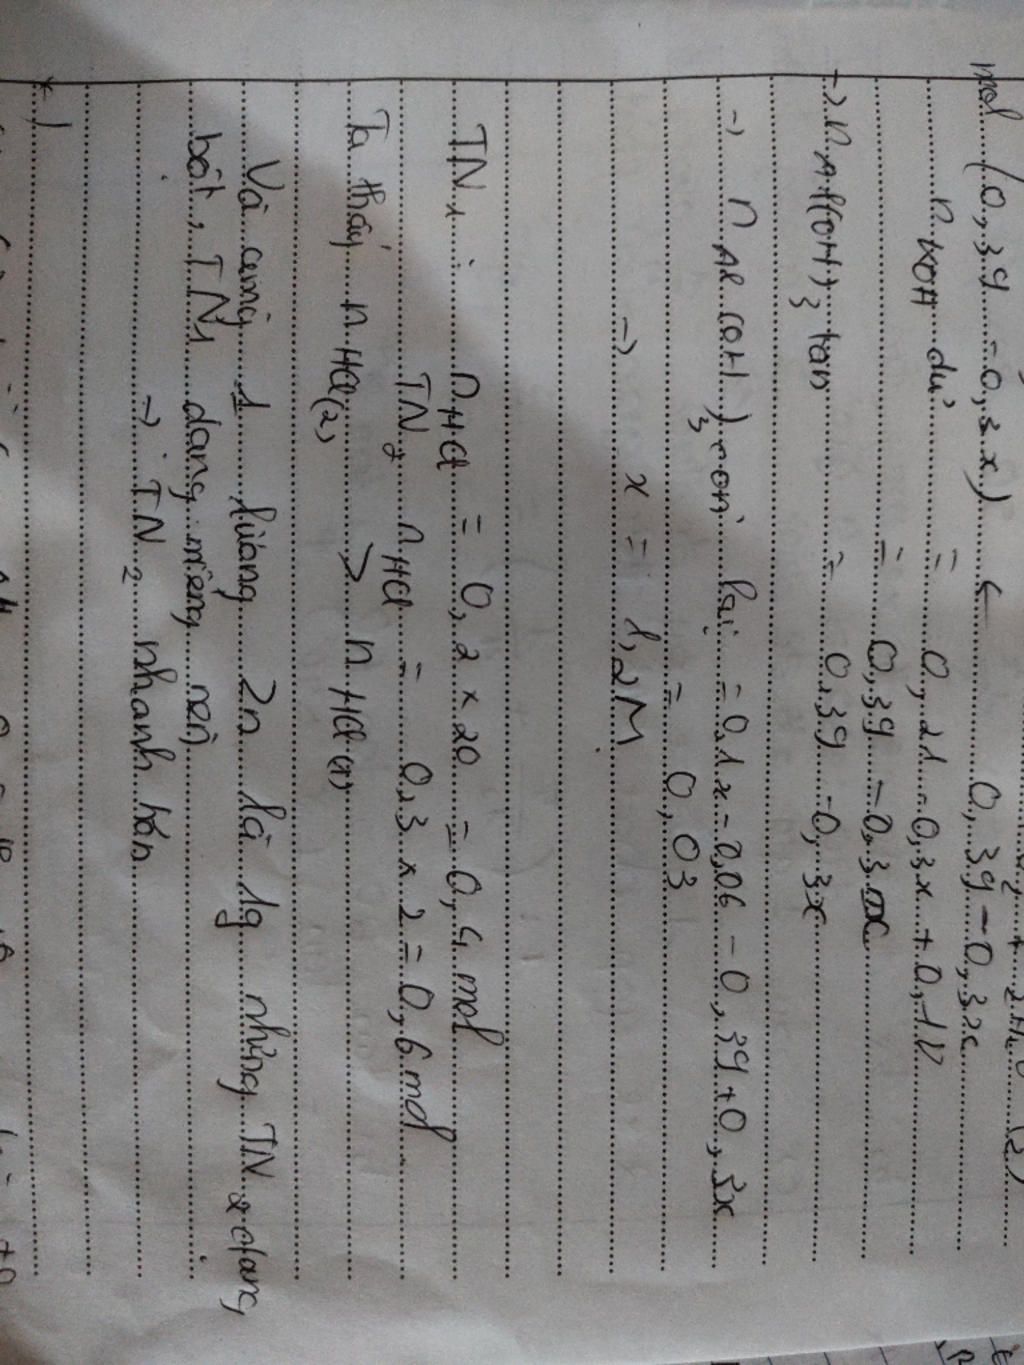 + 2H₂O (2)
mol (0,39 - 0,3x) ← 0,39 - 0,3x
n KOH dư = 0,21 - 0,3x + 0,18
= 0,39 - 0,3x
→ n Al(OH)₃ tan = 0,39 - 0,3x
→ n Al(OH)₃ còn lại = 0,1x - 0,06 - 0,39 + 0,3x
= 0,03
→ x = 1,2M
TN₁ : n HCl = 0,2 × 20 = 0,4 mol
TN₂ n HCl = 0,3 × 2 = 0,6 mol
Ta thấy n HCl(2) > n HCl(1)
Và cùng 1 lượng Zn là 1g nhưng TN₂ dạng
bột, TN₁ dạng miếng nên
→ TN₂ nhanh hơn
*)